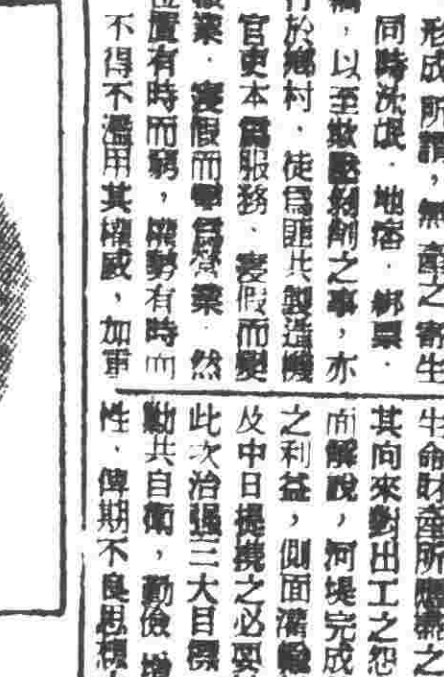 形成所謂，無產之寄生
同時洗？．地痞．綁票．
，以至欺壓剝削之事，亦
行於鄉村．徒爲匪共製造機
官吏本爲服務、寖假而變
業．寖假而舉爲營業．然
位置有時而窮，權勢有時而
不得不濫用其權威，加重
生命財產所應盡之
其向來對出工之怨
面解說，河堤完成
之利益，側面灌輸
及中日提攜之必要
此次治強三大目標
勦共自衛，勤儉增
性，俾期不良思想